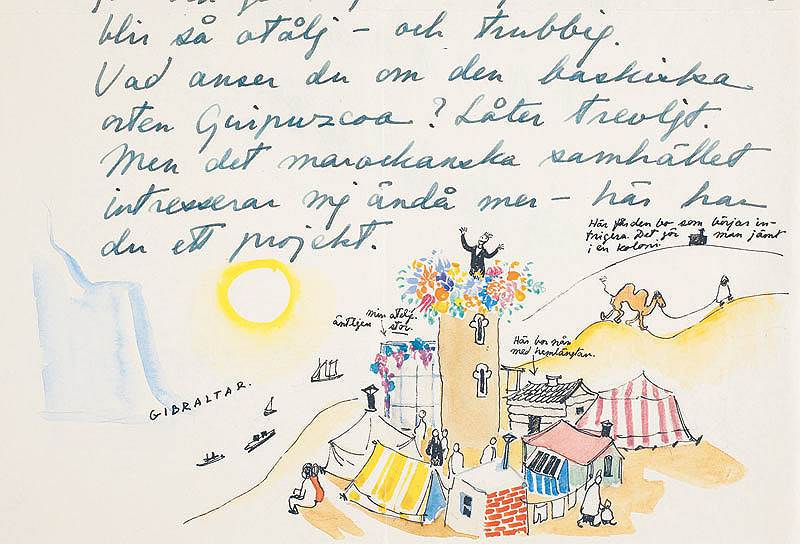 blir så otålj – och trubbig.
Vad anser du om den baskiska
orten Guipuzcoa? Låter trevligt.
Men det marockanska samhället
intresserar mig ändå mer – här har
du ett projekt.
Här får den bo som börjar in-
trigera. Det gör man jämt
i en koloni.
min atelj.
äntligen stor.
Här bor når
med hemlängtan.
GIBRALTAR.